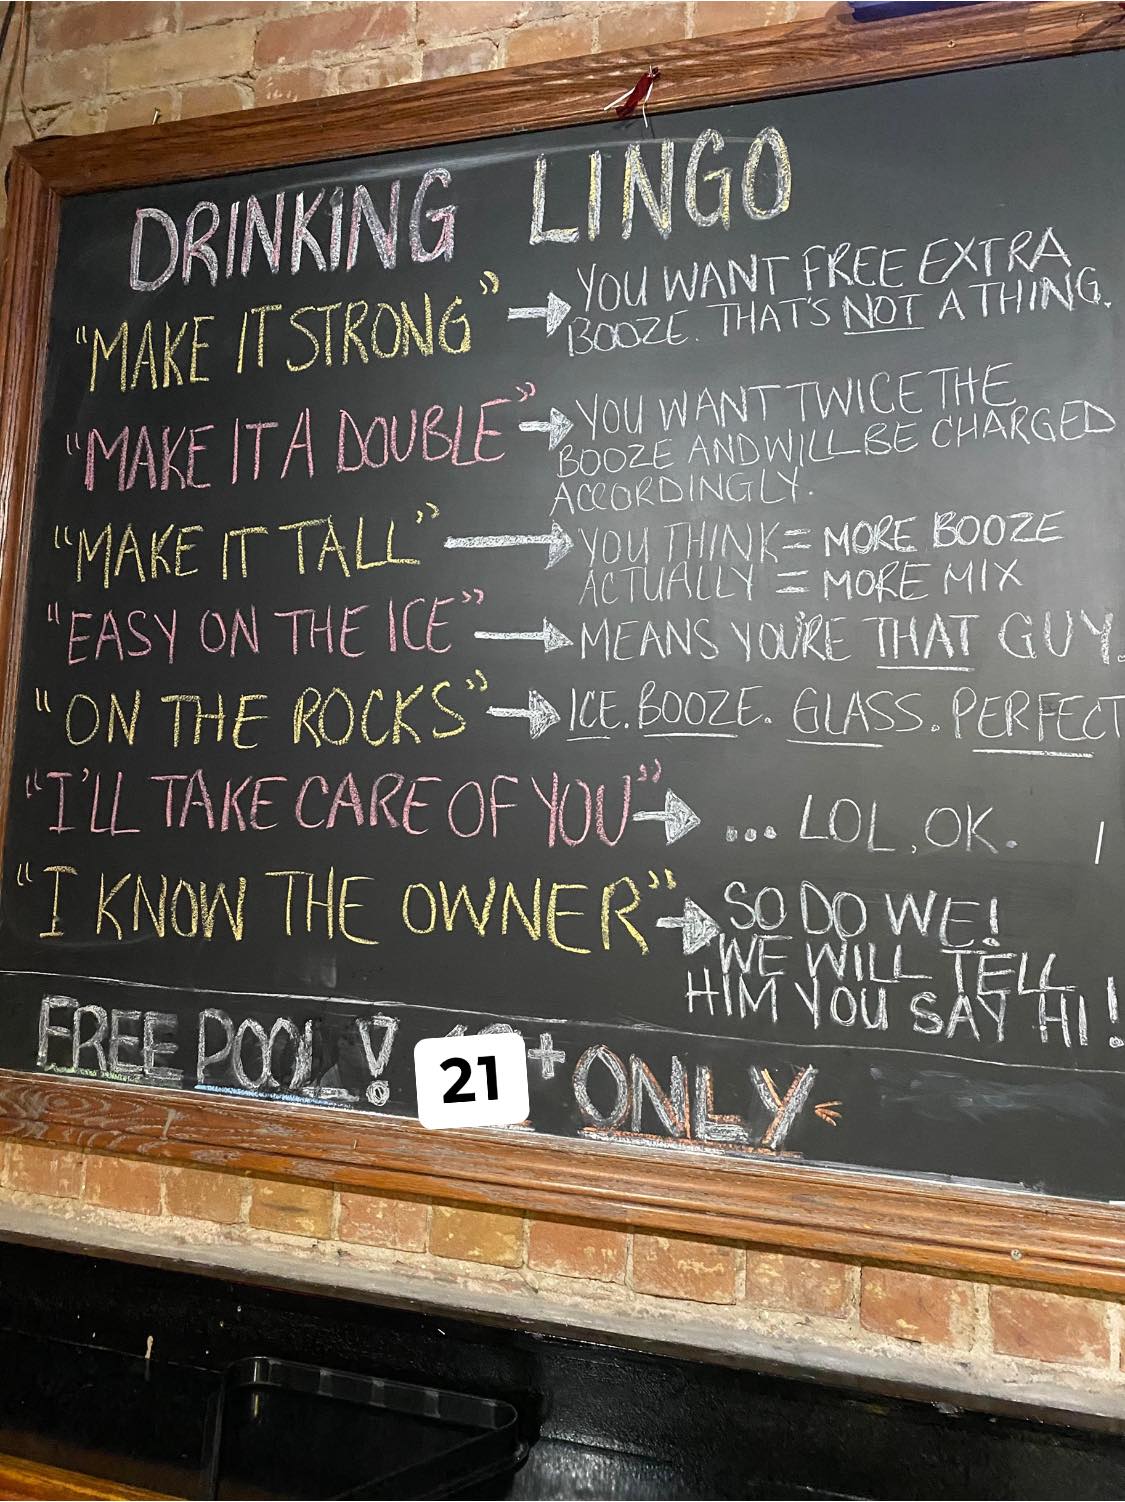 DRINKING LINGO
"MAKE IT STRONG" → YOU WANT FREE EXTRA
BOOZE. THAT'S NOT A THING.
"MAKE IT A DOUBLE" → YOU WANT TWICE THE
BOOZE AND WILL BE CHARGED
ACCORDINGLY.
"MAKE IT TALL" → YOU THINK = MORE BOOZE
ACTUALLY = MORE MIX
"EASY ON THE ICE" → MEANS YOU'RE THAT GUY.
"ON THE ROCKS" → ICE. BOOZE. GLASS. PERFECT
"I'LL TAKE CARE OF YOU" → ... LOL, OK.
"I KNOW THE OWNER" → SO DO WE!
WE WILL TELL
HIM YOU SAY HI!
FREE POOL! 21+ ONLY